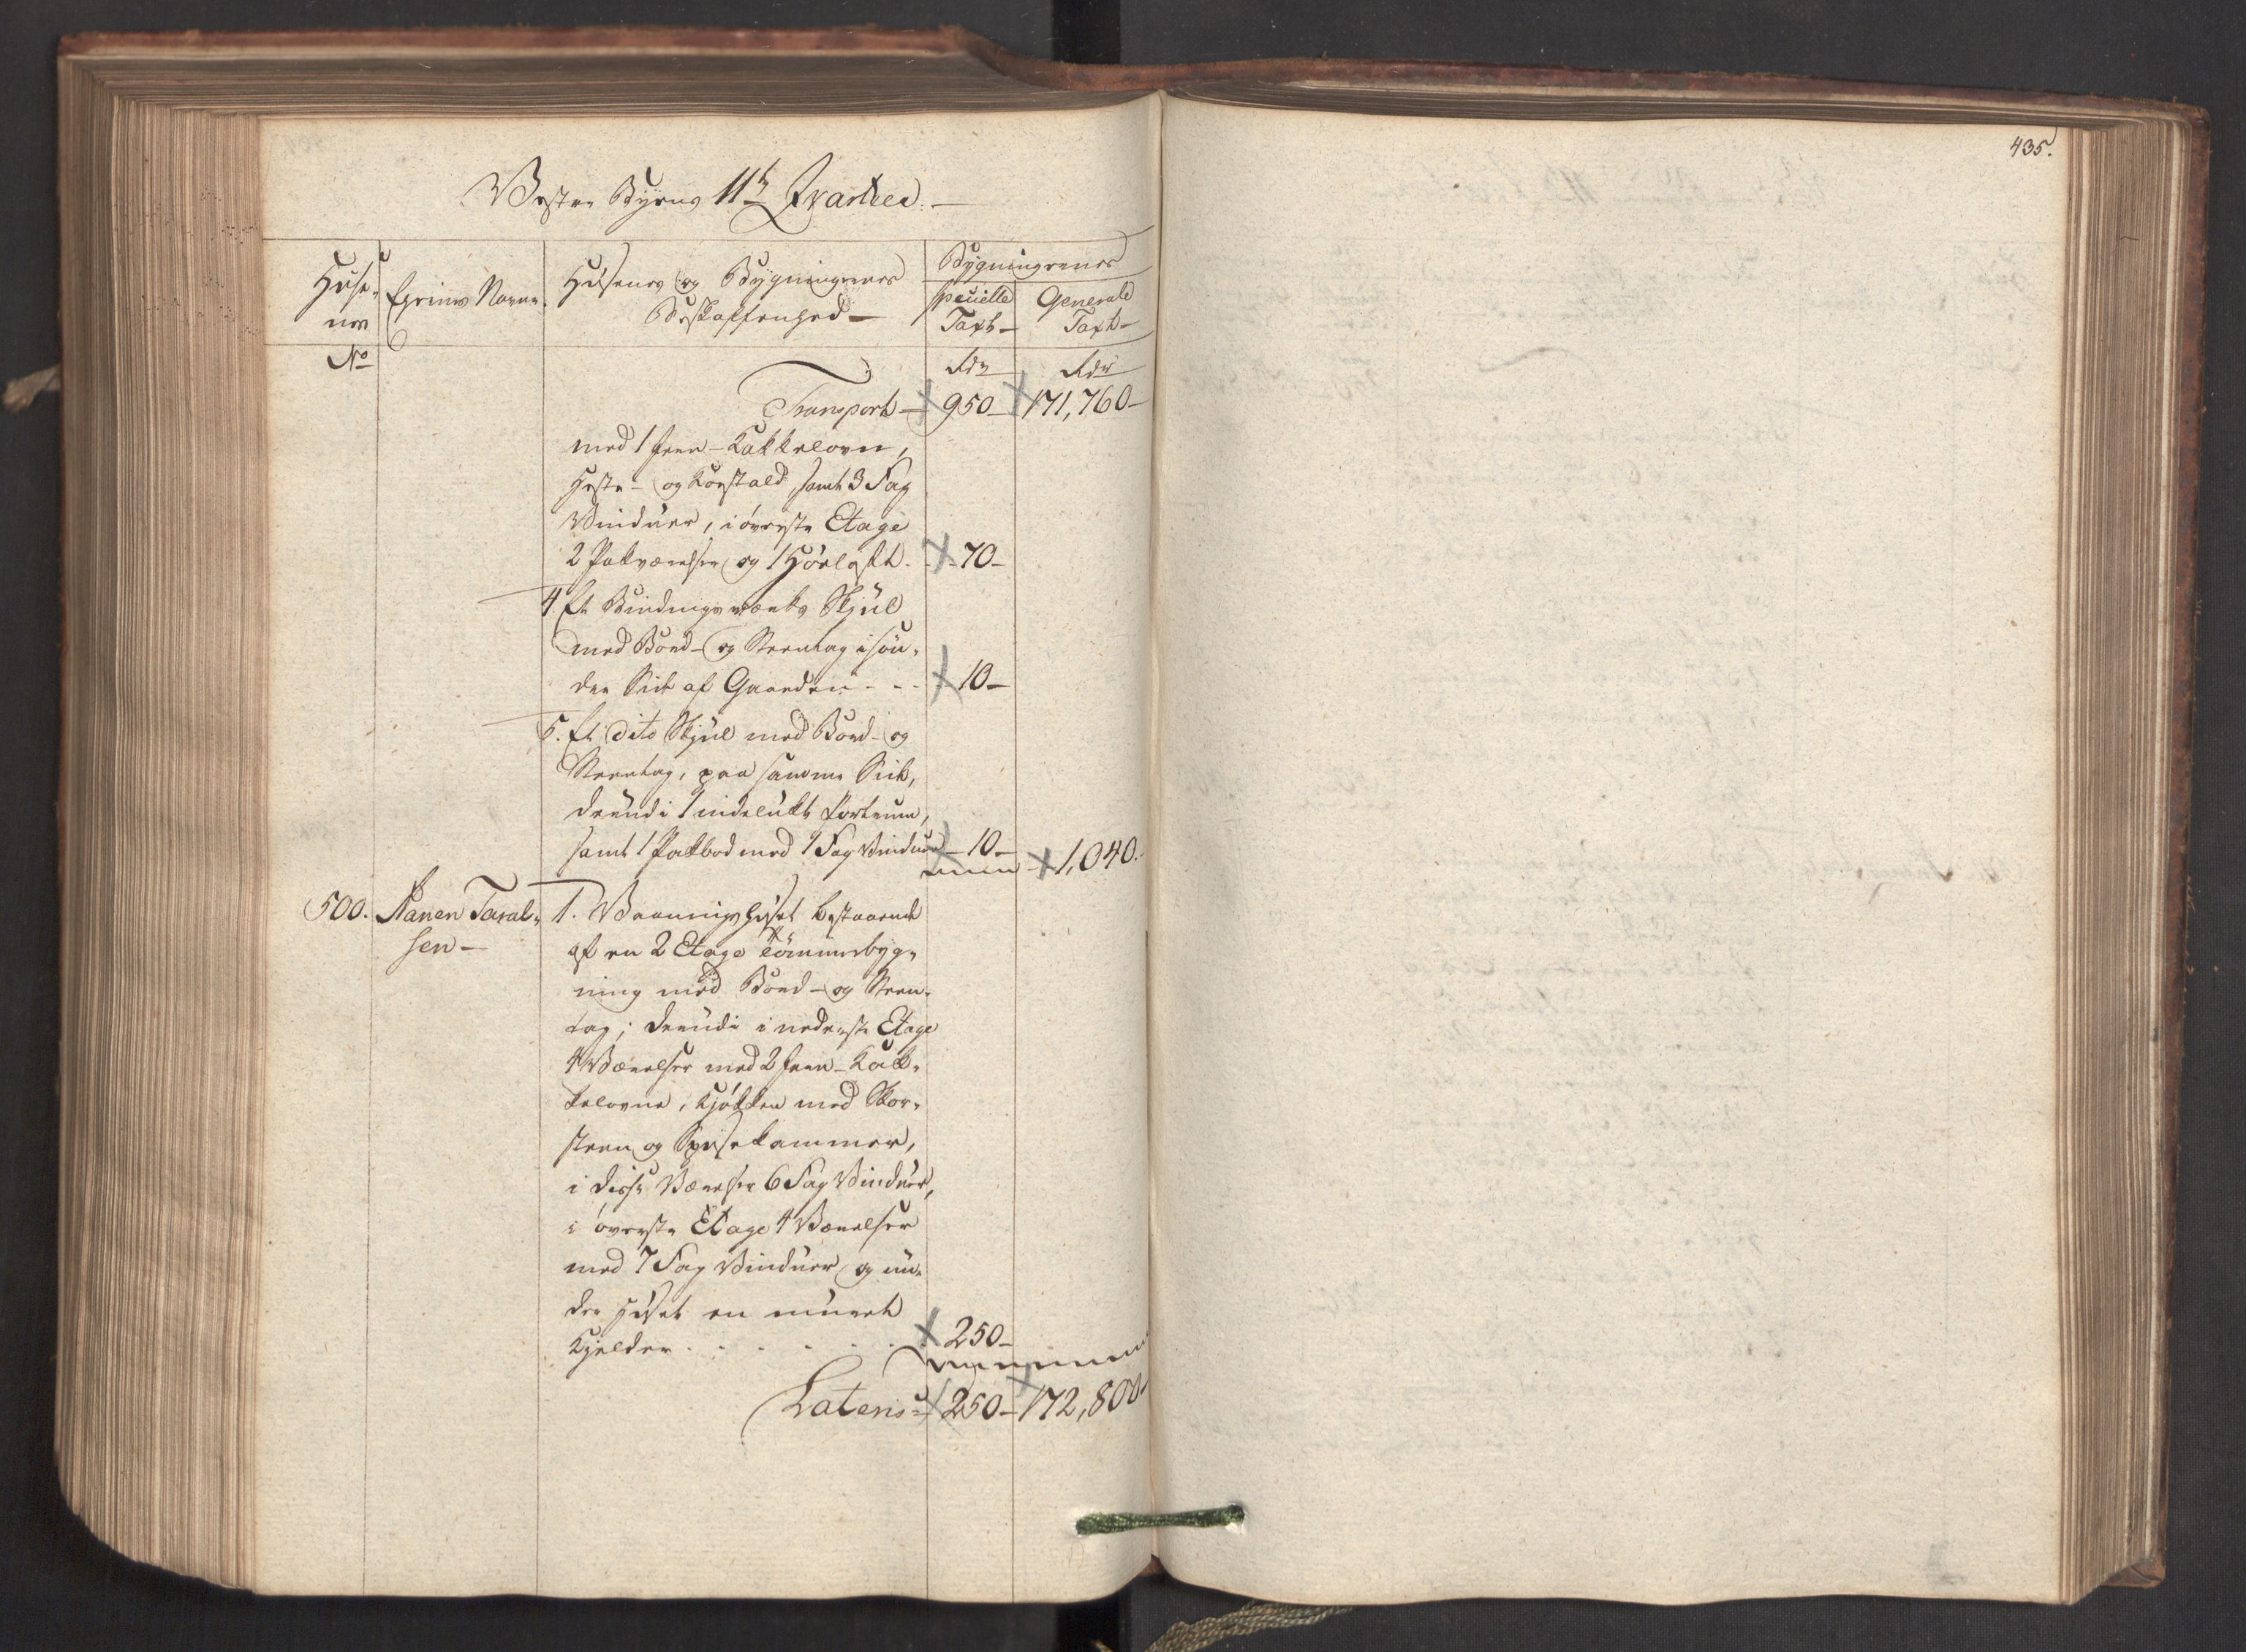 435.
Vestre Byens 11te Qvarteer.
Huse-
nes
No
Eyernes Navne.
Husenes og Bygningernes
Beskaffenhed
Bygningernes
specielle
Taxt
Generale
Taxt
Rdr
Rdr
Transport 950 171,760
med 1 Jern-Kakkelovn,
Heste- og Koestald, samt 3 Fag
Vinduer, i øverste Etage
2 Pakværelser og 1 Høeloft. 70
4. Et Bindingsværks Skjul
med Bord- og Steentag i søn-
dre Side af Gaarden 10
5. Et dito Skjul med Bord- og
Steentag, paa samme Side,
derudi 1 indelukt Portrum,
samt 1 Pakbod med 1 Fag Vinduer 10 1,040.
500. Aanen Taral-
sen
1. Vaaningshuset bestaaende
af en 2 Etage Tömmerbyg-
ning med Bord- og Steen-
tag; derudi i nederste Etage
4 Værelser med 2 Jern-Kak-
kelovne, Kjøkken med Skor-
steen og Spisekammer,
i disse Værelser 6 Fag Vinduer,
i øverste Etage 4 Værelser
med 7 Fag Vinduer og un-
der Huset en muret
Kjelder 250
Lateris 250 172,800